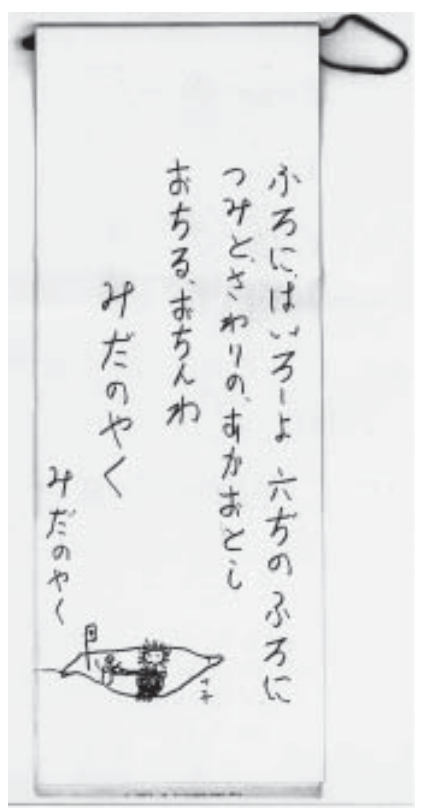 ふろに、はいろーよ 六ぢのふろに
つみと、さわりの、あかおとし
おちる、おちんわ
みだのやく
みだのやく